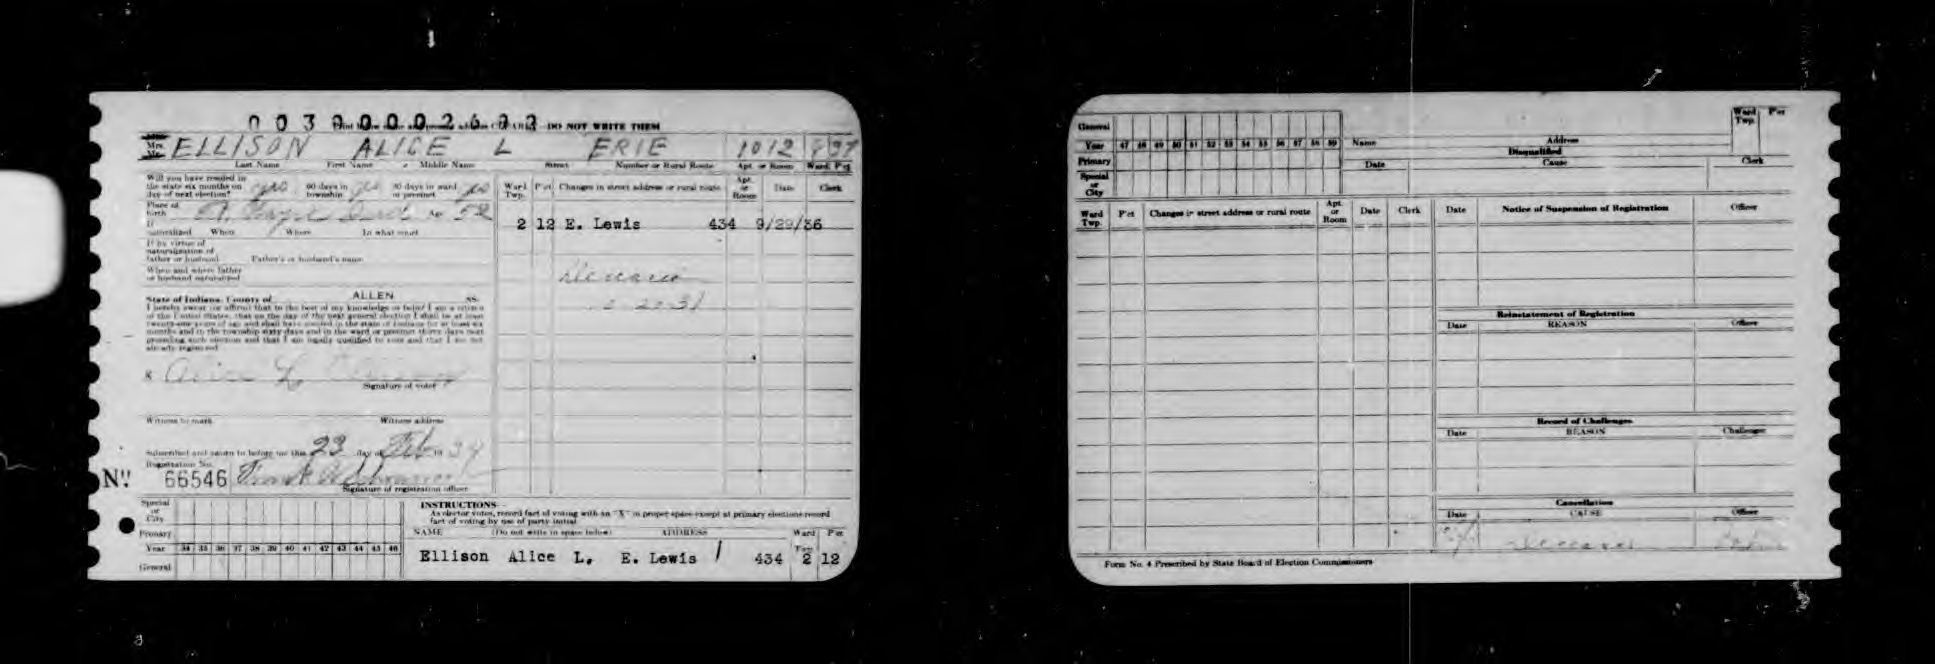 00300002693
DO NOT WRITE THEM
Mrs. ELLISON ALICE L ERIE 1012 37
Last Name First Name or Middle Name Street Number or Rural Route Apt. or Room Ward P'ct
Will you have resided in
the state six months on yes 60 days in yes 30 days in ward yes
day of next election? township or precinct
Place of
birth Ft. Wayne Ind Age 52
If
naturalized When Where In what court
If by virtue of
naturalization of
father or husband Father's or husband's name
When and where father
or husband naturalized
State of Indiana, County of ALLEN ss.
I hereby swear (or affirm) that to the best of my knowledge or belief I am a citizen
of the United States, that on the day of the next general election I shall be at least
twenty-one years of age and shall have resided in the state of Indiana for at least six
months and in the township sixty days and in the ward or precinct thirty days next
preceding such election and that I am legally qualified to vote and that I am not
already registered
X Alice L Ellison
Signature of voter
Witness to mark Witness address
Subscribed and sworn to before me this 23 day of Feb 19 34
Registration No.
No. 66546
Signature of registration officer
Ward Twp. P'ct Changes in street address or rural route Apt. or Room Date Clerk
2 12 E. Lewis 434 9/29/36
Deceased
Special
or
City
Primary
Year 34 35 36 37 38 39 40 41 42 43 44 45 46
General
INSTRUCTIONS
As elector votes, record fact of voting with an "X" in proper space except at primary elections record
fact of voting by use of party initial
NAME (Do not write in space below) ADDRESS Ward Twp. P'ct
Ellison Alice L. E. Lewis 434 2 12
General
Year 47 48 49 50 51 52 53 54 55 56 57 58 59
Primary
Special
or
City
Name Address Ward Twp. P'ct
Disqualified
Date Cause Clerk
Ward Twp. P'ct Changes in street address or rural route Apt. or Room Date Clerk
Date Notice of Suspension of Registration Officer
Reinstatement of Registration
Date REASON Officer
Record of Challenges
Date REASON Challenger
Cancellation
Date CAUSE Officer
Deceased
Form No. 4 Prescribed by State Board of Election Commissioners